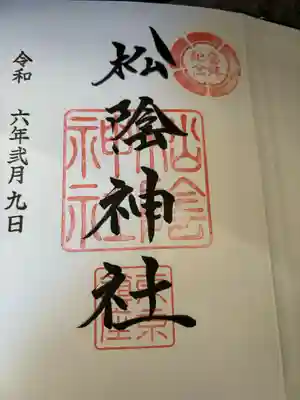 松陰神社
令和 六年 弐月 九日
松陰神社
東京鎮座